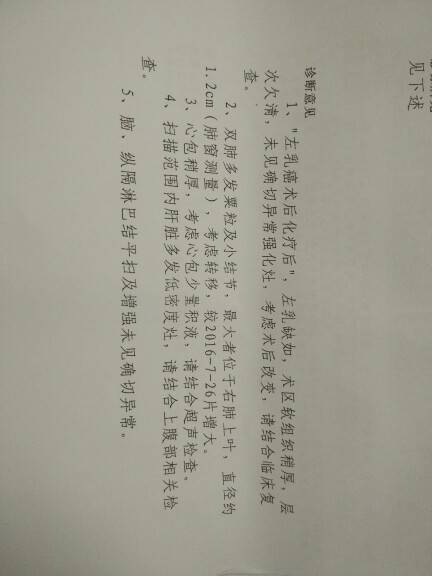 见下述
诊断意见
1、"左乳癌术后化疗后"，左乳缺如，术区软组织稍厚，层
次欠清，未见确切异常强化灶，考虑术后改变，请结合临床复
查。
2、双肺多发粟粒及小结节，最大者位于右肺上叶，直径约
1.2cm（肺窗测量），考虑转移，较2016-7-26片增大。
3、心包稍厚，考虑心包少量积液，请结合超声检查。
4、扫描范围内肝脏多发低密度灶，请结合上腹部相关检
查。
5、脑、纵隔淋巴结平扫及增强未见确切异常。